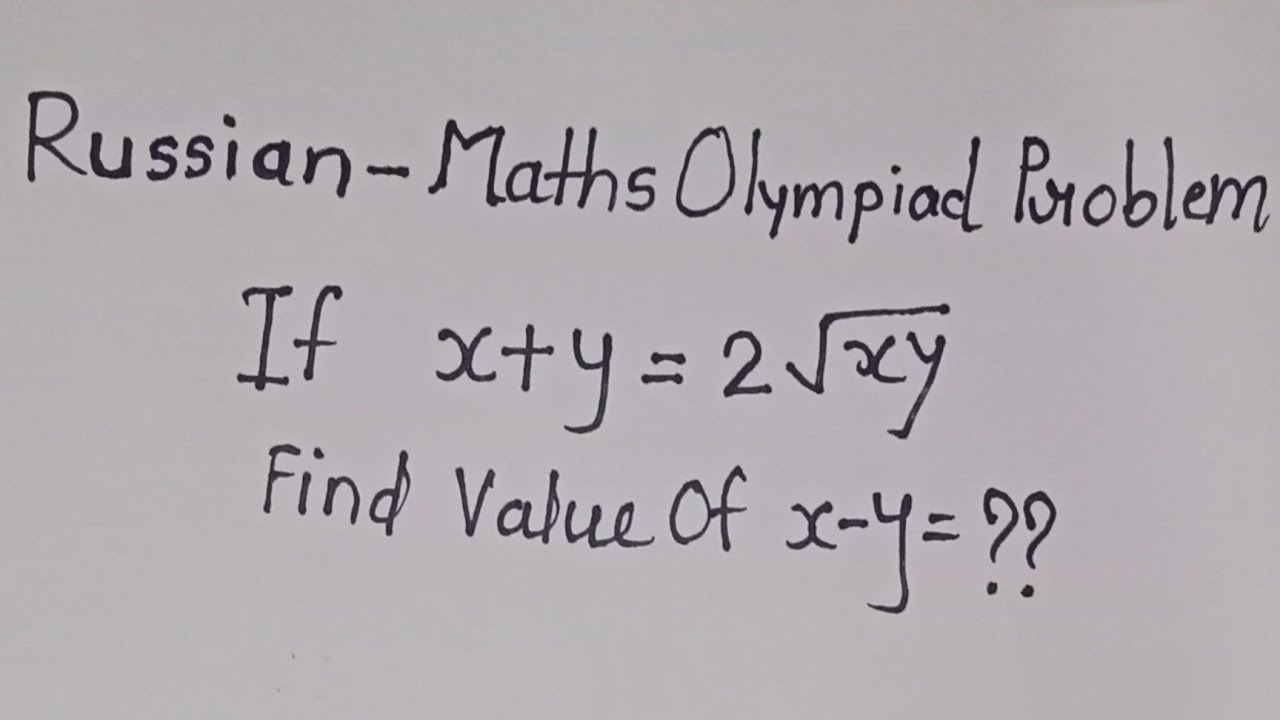 Russian-Maths Olympiad Problem
If x+y=2√xy
Find Value Of x-y=??